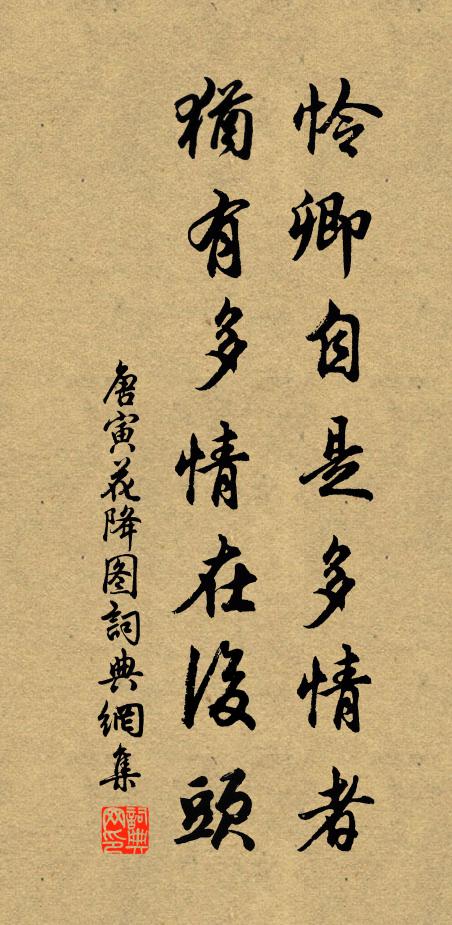 怜卿自是多情者
犹有多情在后头
唐寅花降图词典網集
詞典網印